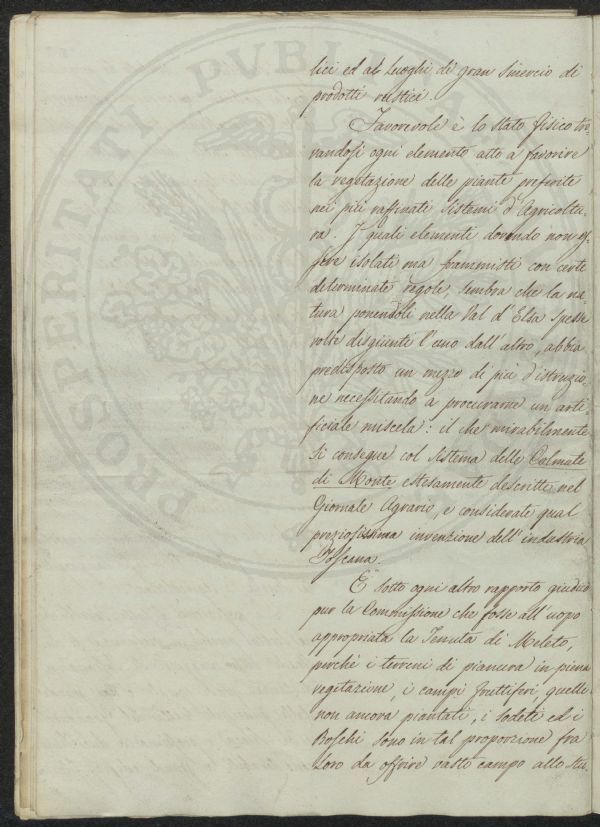 lici ed ai Luoghi di gran smercio di
prodotti rustici.
Favorevole è lo stato fisico tro
vandosi ogni elemento atto a favorire
la vegetazione delle piante preferite
nei più raffinati Sistemi d'Agricoltu-
ra. I quali elementi dovendo non es-
sere isolati ma frammisti con certe
determinate regole, sembra che la na
tura ponendoli nella Val d'Elsa spesse
volte disgiunti l'uno dall'altro, abbia
predisposto un mezzo di più d'istruzio
ne necessitando a procurarne un arti
ficiale miscela: il che mirabilmente
si consegue col Sistema delle Colmate
di Monte estesamente descritte nel
Giornale Agrario, e considerate qual
preziosissima invenzione dell'industria
Toscana.
E sotto ogni altro rapporto giudicò
pur la Commissione che fosse all'uopo
appropriata la Tenuta di Meleto,
perchè i terreni di pianura in piena
vegetazione, i campi fruttiferi, quelli
non ancora piantati, i sodeti ed i
Boschi sono in tal proporzione fra
Loro da offrire vasto campo allo Stu-
PROSPERITATI PVBLICAE